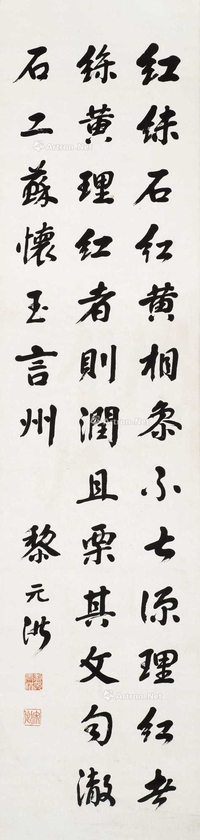 紅絲石紅黃相參不甚深理紅者
絲黃理紅者則潤且栗其文勻澈
石工蘇懷玉言州
黎元洪